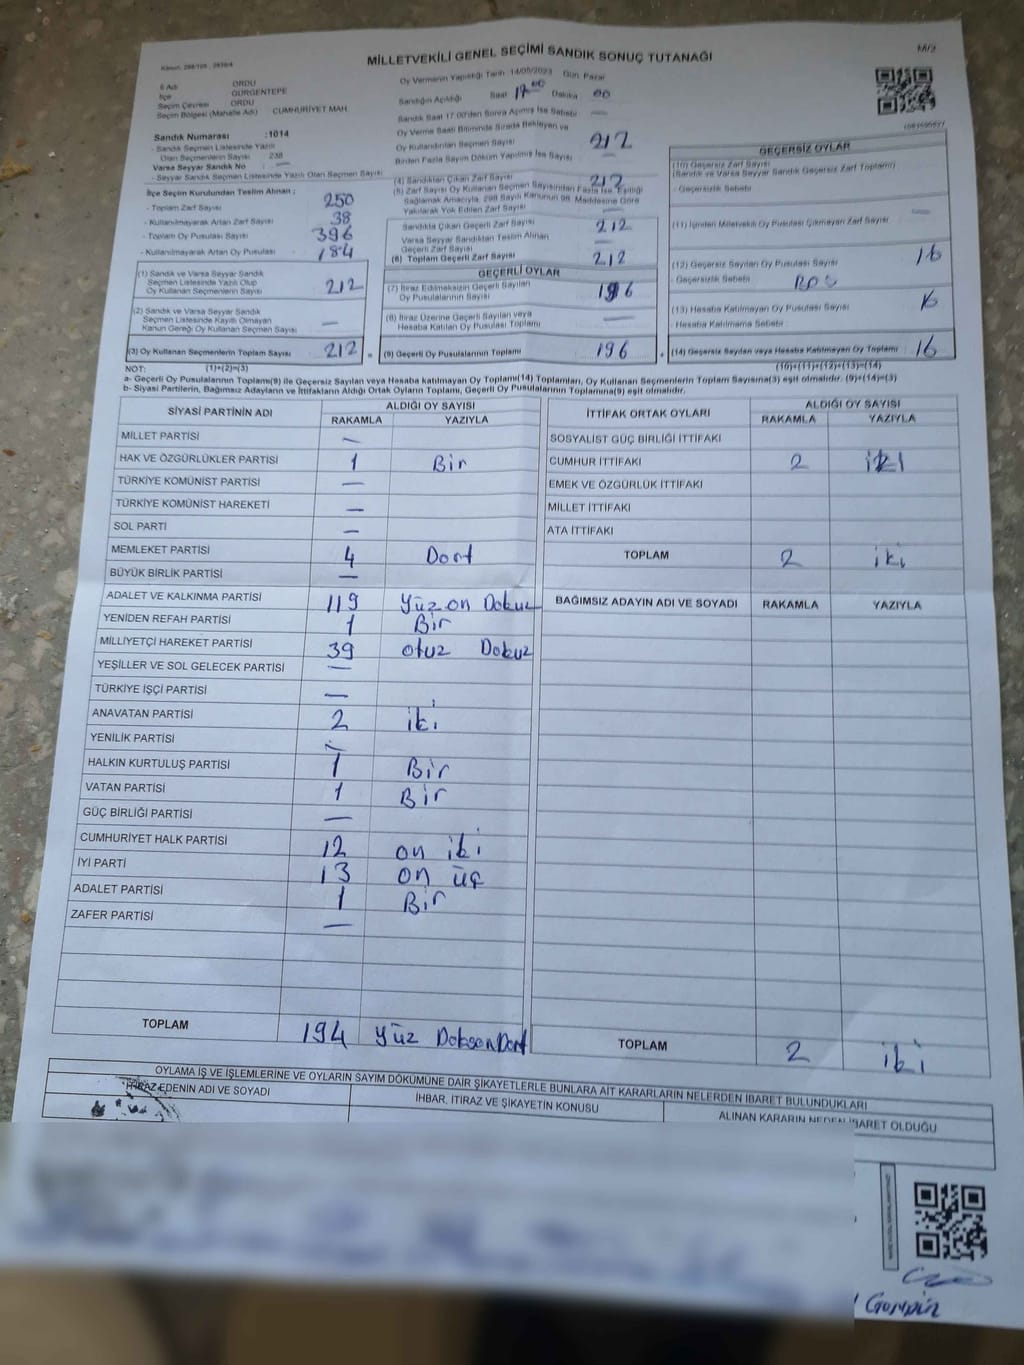 MİLLETVEKİLİ GENEL SEÇİMİ SANDIK SONUÇ TUTANAĞI
İl Adı ORDU
İlçe GÜRGENTEPE
Seçim Çevresi ORDU
Seçim Bölgesi (Mahalle Adı) CUMHURİYET MAH.
Sandık Numarası :1014
Sandık Seçmen Listesinde Yazılı
Olan Seçmenlerin Sayısı 238
Varsa Seyyar Sandık No —
- Seyyar Sandık Seçmen Listesinde Yazılı Olan Seçmen Sayısı
Oy Vermenin Yapıldığı Tarih 14/05/2023 Gün Pazar
Sandığın Açıldığı Saat 17:00 Dakika 00
Sandık Saat 17:00'den Sonra Açılmış İse Sebebi —
Oy Verme Saati Bitiminde Sırada Bekleyen ve
Oy Kullandırılan Seçmen Sayısı 212
Birden Fazla Sayım Döküm Yapılmış İse Sayısı —
İlçe Seçim Kurulundan Teslim Alınan ;
- Toplam Zarf Sayısı 250
- Kullanılmayarak Artan Zarf Sayısı 38
- Toplam Oy Pusulası Sayısı 396
- Kullanılmayarak Artan Oy Pusulası 184
(1) Sandık ve Varsa Seyyar Sandık
Seçmen Listesinde Yazılı Olup
Oy Kullanan Seçmenlerin Sayısı 212
(2) Sandık ve Varsa Seyyar Sandık
Seçmen Listesinde Kayıtlı Olmayan
Kanun Gereği Oy Kullanan Seçmen Sayısı —
(3) Oy Kullanan Seçmenlerin Toplam Sayısı 212
(4) Sandıktan Çıkan Zarf Sayısı 212
(5) Zarf Sayısı Oy Kullanan Seçmen Sayısından Fazla İse, Eşitliği
Sağlamak Amacıyla, 298 Sayılı Kanunun 98. Maddesine Göre
Yakılarak Yok Edilen Zarf Sayısı —
Sandıkta Çıkan Geçerli Zarf Sayısı 212
Varsa Seyyar Sandıktan Teslim Alınan
Geçerli Zarf Sayısı —
(6) Toplam Geçerli Zarf Sayısı 212
GEÇERLİ OYLAR
(7) İtiraz Edilmeksizin Geçerli Sayılan
Oy Pusulalarının Sayısı 196
(8) İtiraz Üzerine Geçerli Sayılan veya
Hesaba Katılan Oy Pusulası Toplamı —
(9) Geçerli Oy Pusulalarının Toplamı 196
GEÇERSİZ OYLAR
(10) Geçersiz Zarf Sayısı
(Sandık ve Varsa Seyyar Sandık Geçersiz Zarf Toplamı)
- Geçersizlik Sebebi
(11) İçinden Milletvekili Oy Pusulası Çıkmayan Zarf Sayısı —
(12) Geçersiz Sayılan Oy Pusulası Sayısı 16
- Geçersizlik Sebebi
(13) Hesaba Katılmayan Oy Pusulası Sayısı
- Hesaba Katılmama Sebebi
(14) Geçersiz Sayılan veya Hesaba Katılmayan Oy Toplamı 16
NOT: (1)+(2)=(3) (10)+(11)+(12)+(13)=(14)
a- Geçerli Oy Pusulalarının Toplamı(9) ile Geçersiz Sayılan veya Hesaba katılmayan Oy Toplamı(14) Toplamları, Oy Kullanan Seçmenlerin Toplam Sayısına(3) eşit olmalıdır. (9)+(14)=(3)
b- Siyasi Partilerin, Bağımsız Adayların ve İttifakların Aldığı Ortak Oyların Toplamı, Geçerli Oy Pusulalarının Toplamına(9) eşit olmalıdır.
SİYASİ PARTİNİN ADI ALDIĞI OY SAYISI
RAKAMLA YAZIYLA
MİLLET PARTİSİ —
HAK VE ÖZGÜRLÜKLER PARTİSİ 1 Bir
TÜRKİYE KOMÜNİST PARTİSİ —
TÜRKİYE KOMÜNİST HAREKETİ —
SOL PARTİ —
MEMLEKET PARTİSİ 4 Dört
BÜYÜK BİRLİK PARTİSİ —
ADALET VE KALKINMA PARTİSİ 119 Yüz on Dokuz
YENİDEN REFAH PARTİSİ 1 Bir
MİLLİYETÇİ HAREKET PARTİSİ 39 otuz Dokuz
YEŞİLLER VE SOL GELECEK PARTİSİ —
TÜRKİYE İŞÇİ PARTİSİ —
ANAVATAN PARTİSİ 2 iki
YENİLİK PARTİSİ —
HALKIN KURTULUŞ PARTİSİ 1 Bir
VATAN PARTİSİ 1 Bir
GÜÇ BİRLİĞİ PARTİSİ —
CUMHURİYET HALK PARTİSİ 12 on iki
İYİ PARTİ 13 on üç
ADALET PARTİSİ 1 Bir
ZAFER PARTİSİ —
TOPLAM 194 Yüz Doksan Dört
İTTİFAK ORTAK OYLARI ALDIĞI OY SAYISI
RAKAMLA YAZIYLA
SOSYALİST GÜÇ BİRLİĞİ İTTİFAKI
CUMHUR İTTİFAKI 2 iki
EMEK VE ÖZGÜRLÜK İTTİFAKI
MİLLET İTTİFAKI
ATA İTTİFAKI
TOPLAM 2 iki
BAĞIMSIZ ADAYIN ADI VE SOYADI RAKAMLA YAZIYLA
TOPLAM 2 iki
OYLAMA İŞ VE İŞLEMLERİNE VE OYLARIN SAYIM DÖKÜMÜNE DAİR ŞİKAYETLERLE BUNLARA AİT KARARLARIN NELERDEN İBARET BULUNDUKLARI
İTİRAZ EDENİN ADI VE SOYADI
İHBAR, İTİRAZ VE ŞİKAYETİN KONUSU
ALINAN KARARIN NEDEN İBARET OLDUĞU